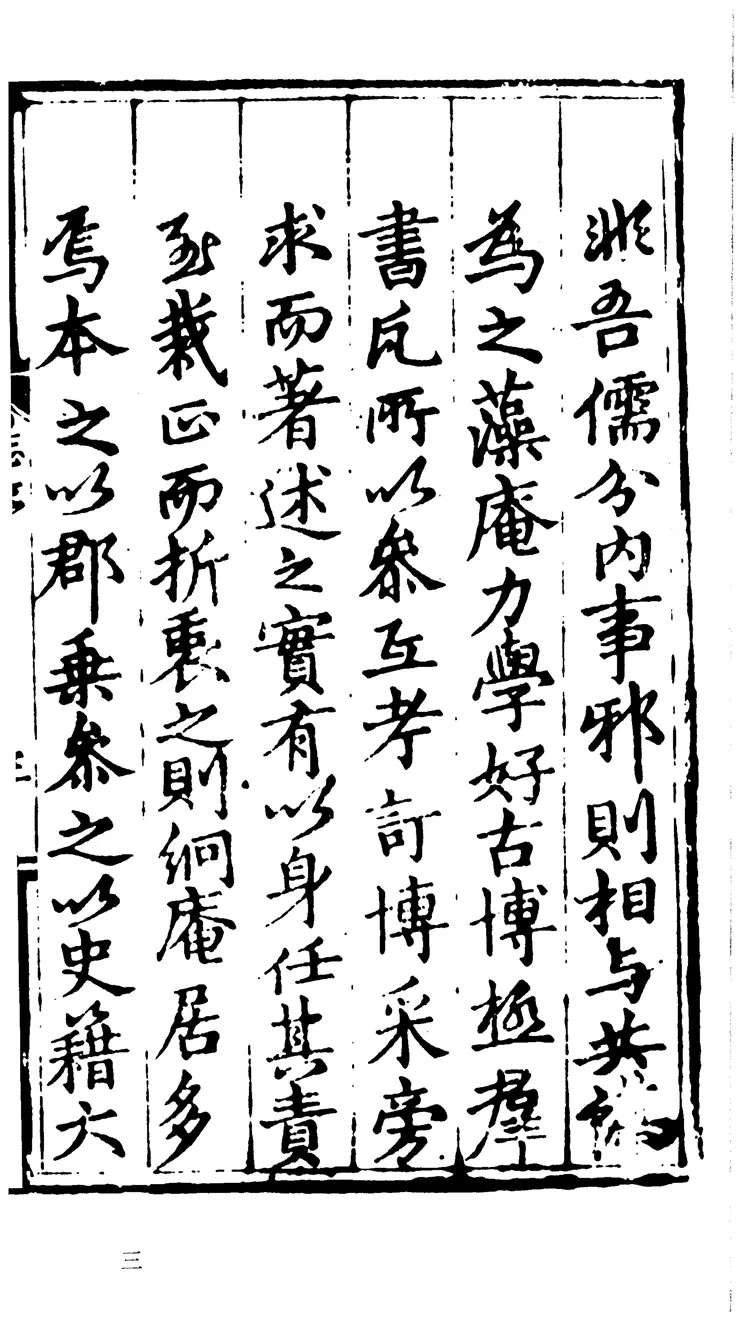 非吾儒分内事邪則相与共
為之藻庵力學好古博極羣
書凡所以叅互考訂博采旁
求而著述之實有以身任其責
至裁正而折衷之則絅庵居多
焉本之以郡乗叅之以史籍大
三